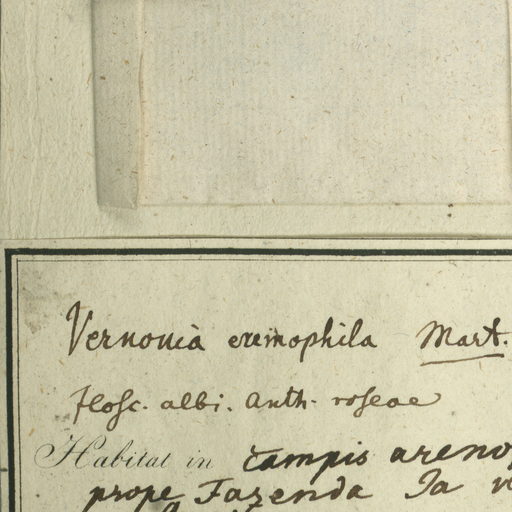 Vernonia eremophila Mart.
Flosc. albi. Anth. roseae
Habitat in campis areno
prope Fazenda Ja